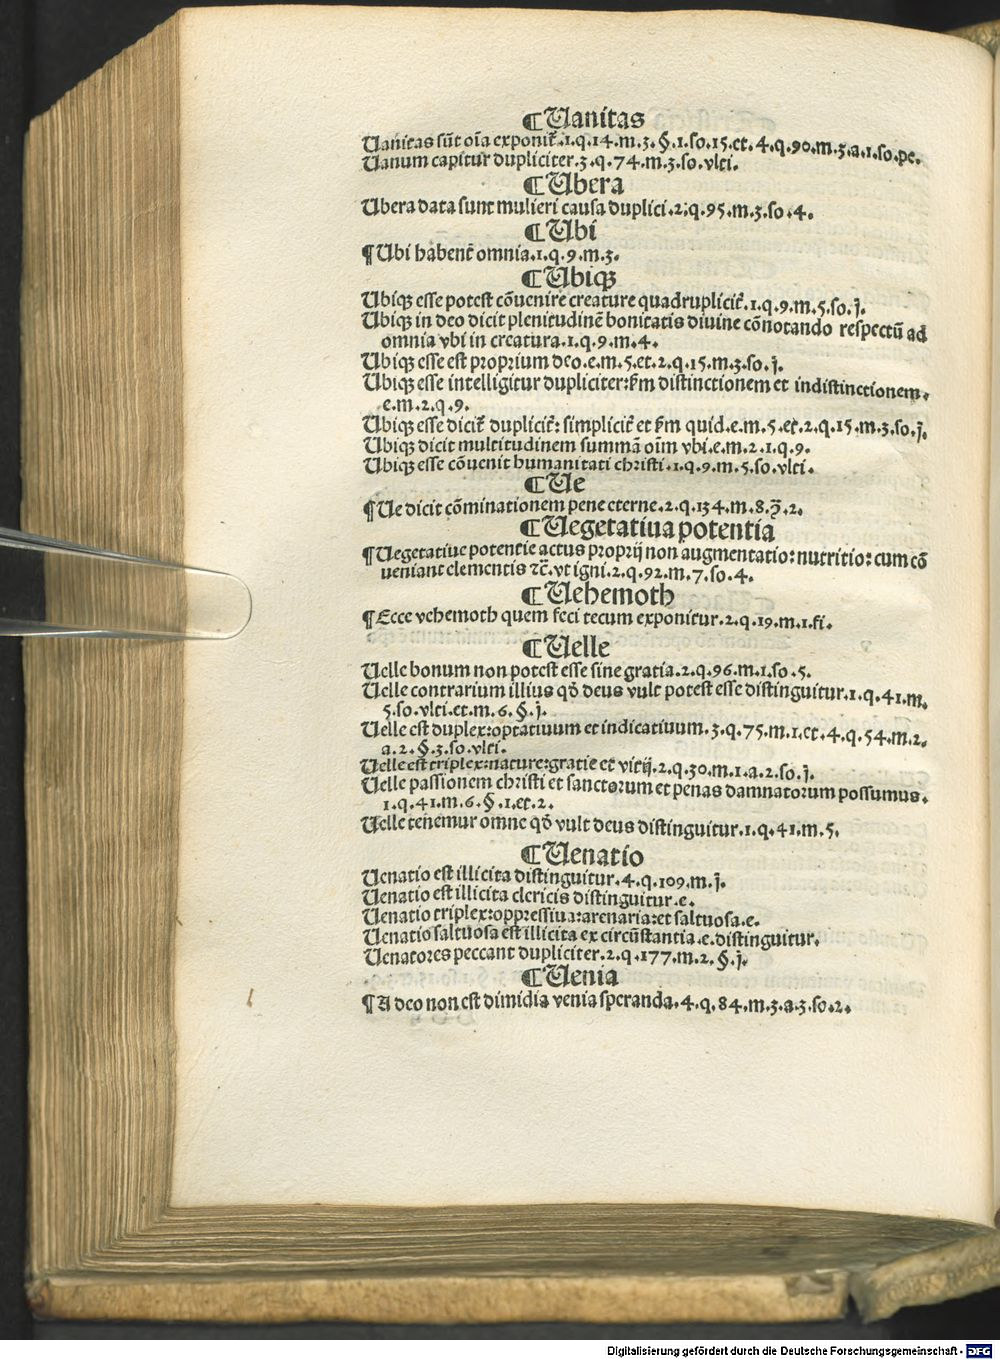 ¶Uanitas
Uanitas sūt oīa exponit̄.1.q.14.m.3.§.1.so.15.et.4.q.90.m.3.a.1.so.pe.
Uanum capitur dupliciter.3.q.74.m.3.so.vlti.
¶Ubera
Ubera data sunt mulieri causa duplici.2.q.95.m.3.so.4.
¶Ubi
¶Ubi habent̄ omnia.1.q.9.m.3.
¶Ubiqꝫ
Ubiqꝫ esse potest cōuenire creature quadruplicit̄.1.q.9.m.5.so.j.
Ubiqꝫ in deo dicit plenitudinē bonitatis diuine cōnotando respectū ad
omnia vbi in creatura.1.q.9.m.4.
Ubiqꝫ esse est proprium deo.e.m.5.et.2.q.15.m.3.so.j.
Ubiqꝫ esse intelligitur dupliciter:ẜm distinctionem et indistinctionem.
e.m.2.q.9.
Ubiqꝫ esse dicit̄ duplicit̄: simplicit̄ et ẜm quid.e.m.5.et.2.q.15.m.3.so.j.
Ubiqꝫ dicit multitudinem summā oīm vbi.e.m.2.1.q.9.
Ubiqꝫ esse cōuenit humanitati christi.1.q.9.m.5.so.vlti.
¶Ue
¶Ue dicit cōminationem pene eterne.2.q.134.m.8.q̄.2.
¶Uegetatiua potentia
¶Uegetatiue potentie actus proprij non augmentatio: nutritio: cum cō
ueniant elementis ⁊c̄.vt igni.2.q.92.m.7.so.4.
¶Uehemoth
¶Ecce vehemoth quem feci tecum exponitur.2.q.19.m.1.fi.
¶Uelle
Uelle bonum non potest esse sine gratia.2.q.96.m.1.so.5.
Uelle contrarium illius qō deus vult potest esse distinguitur.1.q.41.m.
5.so.vlti.et.m.6.§.j.
Uelle est duplex:optatiuum et indicatiuum.3.q.75.m.1.et.4.q.54.m.2.
a.2.§.3.so.vlti.
Uelle est triplex:nature:gratie et vitij.2.q.30.m.1.a.2.so.j.
Uelle passionem christi et sanctorum et penas damnatorum possumus.
1.q.41.m.6.§.1.et.2.
Uelle tenemur omne qō vult deus distinguitur.1.q.41.m.5.
¶Uenatio
Uenatio est illicita distinguitur.4.q.109.m.j.
Uenatio est illicita clericis distinguitur.e.
Uenatio triplex:oppressiua:arenaria:et saltuosa.e.
Uenatio saltuosa est illicita ex circūstantia.e.distinguitur.
Uenatores peccant dupliciter.2.q.177.m.2.§.j.
¶Uenia
¶A deo non est dimidia venia speranda.4.q.84.m.3.a.3.so.2.
Digitalisierung gefördert durch die Deutsche Forschungsgemeinschaft - DFG